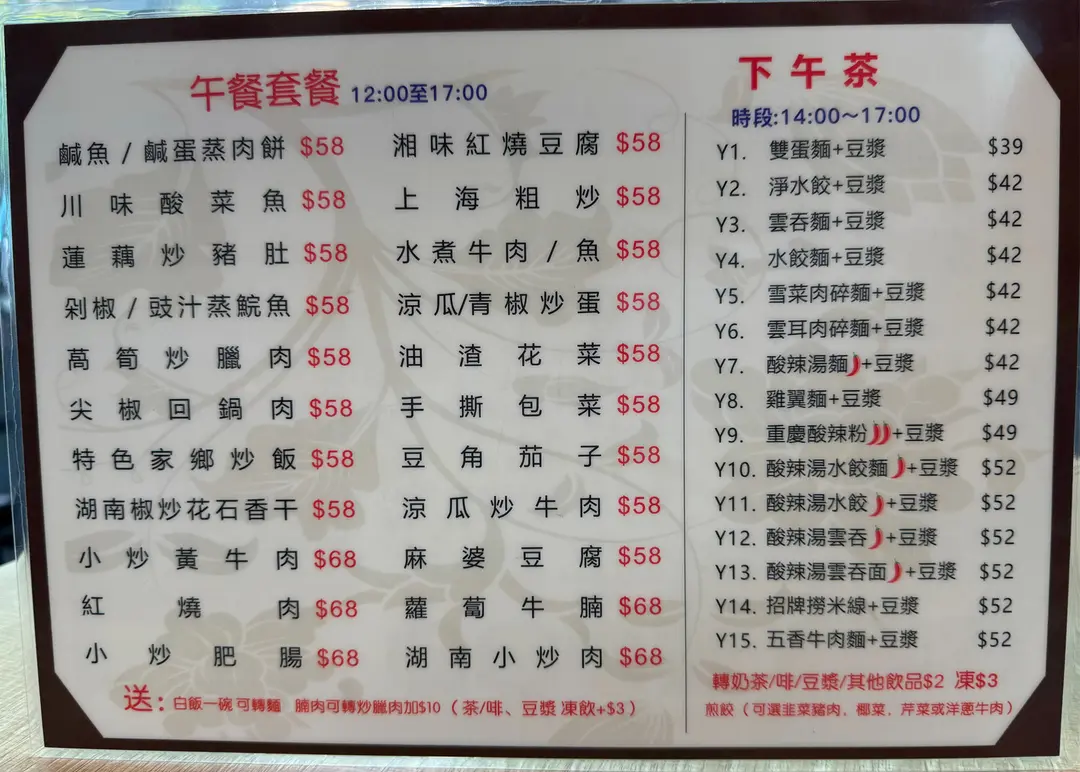 午餐套餐 12:00至17:00
鹹魚/鹹蛋蒸肉餅 $58
川味酸菜魚 $58
蓮藕炒豬肚 $58
剁椒/豉汁蒸鯇魚 $58
萵筍炒臘肉 $58
尖椒回鍋肉 $58
特色家鄉炒飯 $58
湖南椒炒花石香干 $58
小炒黃牛肉 $68
紅燒肉 $68
小炒肥腸 $68
湘味紅燒豆腐 $58
上海粗炒 $58
水煮牛肉/魚 $58
涼瓜/青椒炒蛋 $58
油渣花菜 $58
手撕包菜 $58
豆角茄子 $58
涼瓜炒牛肉 $58
麻婆豆腐 $58
蘿蔔牛腩 $68
湖南小炒肉 $68
送：白飯一碗 可轉麵 腩肉可轉炒臘肉加$10（茶/啡、豆漿 凍飲+$3）
下午茶
時段:14:00～17:00
Y1. 雙蛋麵+豆漿 $39
Y2. 淨水餃+豆漿 $42
Y3. 雲吞麵+豆漿 $42
Y4. 水餃麵+豆漿 $42
Y5. 雪菜肉碎麵+豆漿 $42
Y6. 雲耳肉碎麵+豆漿 $42
Y7. 酸辣湯麵+豆漿 $42
Y8. 雞翼麵+豆漿 $49
Y9. 重慶酸辣粉+豆漿 $49
Y10. 酸辣湯水餃麵+豆漿 $52
Y11. 酸辣湯水餃+豆漿 $52
Y12. 酸辣湯雲吞+豆漿 $52
Y13. 酸辣湯雲吞面+豆漿 $52
Y14. 招牌撈米線+豆漿 $52
Y15. 五香牛肉麵+豆漿 $52
轉奶茶/啡/豆漿/其他飲品$2 凍$3
煎餃（可選韭菜豬肉、椰菜、芹菜或洋蔥牛肉）